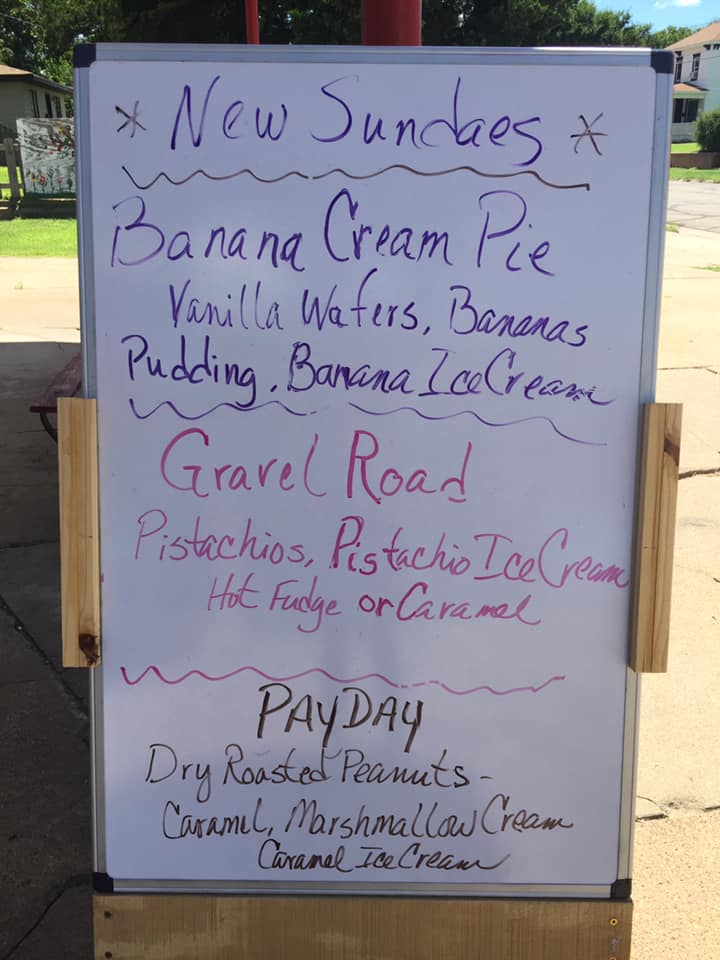 * New Sundaes *
Banana Cream Pie
Vanilla Wafers, Bananas
Pudding, Banana Ice Cream
Gravel Road
Pistachios, Pistachio Ice Cream
Hot Fudge or Caramel
PAYDAY
Dry Roasted Peanuts -
Caramel, Marshmallow Cream
Caramel Ice Cream